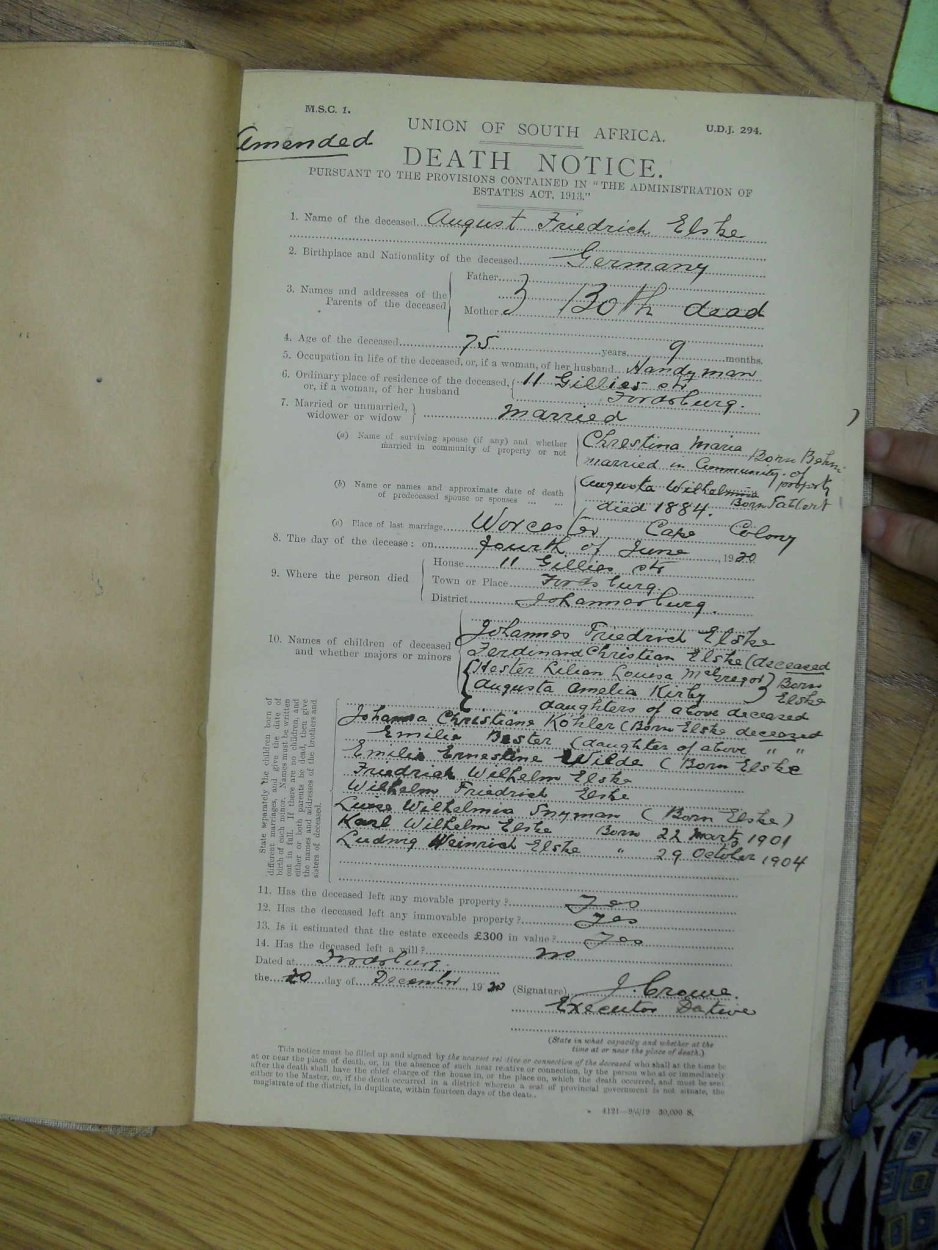 M.S.C. 1.
U.D.J. 294.
Amended
UNION OF SOUTH AFRICA.
DEATH NOTICE.
PURSUANT TO THE PROVISIONS CONTAINED IN "THE ADMINISTRATION OF
ESTATES ACT, 1913."
1. Name of the deceased August Friedrich Elske
2. Birthplace and Nationality of the deceased Germany
3. Names and addresses of the Parents of the deceased
Father
Mother
Both dead
4. Age of the deceased 75 years 9 months.
5. Occupation in life of the deceased, or, if a woman, of her husband Handyman
6. Ordinary place of residence of the deceased, 11 Gillies str
or, if a woman, of her husband Fordsburg.
7. Married or unmarried, widower or widow Married
(a) Name of surviving spouse (if any) and whether married in community of property or not
Chrestina Maria Born Bohm
married in Community of property
(b) Name or names and approximate date of death of predeceased spouse or spouses
Augusta Wilhelmina Born
died 1884.
(c) Place of last marriage Worcester Cape Colony
8. The day of the decease: on fourth of June, 1920
9. Where the person died
House 11 Gillies str
Town or Place Fordsburg
District Johannesburg.
10. Names of children of deceased and whether majors or minors
Johannes Friedrich Elske
Ferdinand Christian Elske (deceased
Hester Lilian Louisa McGregor } Born
Augusta Amelia Kirby } Elske
daughters of above deceased
State separately the children born of
different marriages, and give the date of
birth of each minor. Names must be written
out in full. If there are no children and
either or both parents be dead, then give
the names and addresses of the brothers and
sisters of deceased.
Johanna Christiane Kohler (Born Elske deceased
Emilie Bester (daughter of above " "
Emilie Ernestine Wilde (Born Elske
Friedrich Wilhelm Elske
Wilhelm Friedrich Elske
Wilhelmia Snyman (Born Elske)
Karl Wilhelm Elske Born 22 Marts 1901
Ludwig Heinrich Elske " 29 October 1904
11. Has the deceased left any movable property? Yes
12. Has the deceased left any immovable property? Yes
13. Is it estimated that the estate exceeds £300 in value? Yes
14. Has the deceased left a will? no
Dated at Fordsburg.
the 20 day of December, 1920 (Signature) J. Crowe.
Executor Dative
(State in what capacity and whether at the
time at or near the place of death.)
This notice must be filled up and signed by the nearest relative or connection of the deceased who shall at the time be
at or near the place of death, or, in the absence of such near relative or connection, by the person who at or immediately
after the death shall have the chief charge of the house in, or the place on, which the death occurred, and must be sent
either to the Master, or, if the death occurred in a district wherein a seat of provincial government is not situate, the
magistrate of the district, in duplicate, within fourteen days of the death.
4121—9/6/19—30,000 S.